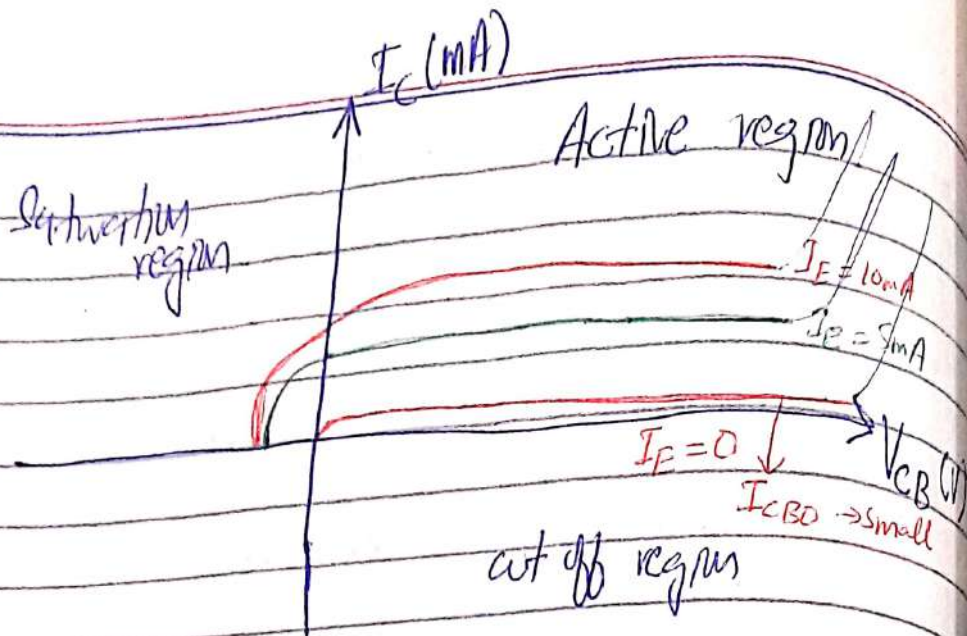 I_C (mA)
Active region
Saturation
region
I_E = 10mA
I_E = 5mA
I_E = 0
V_CB (V)
I_CBO → small
cut off region